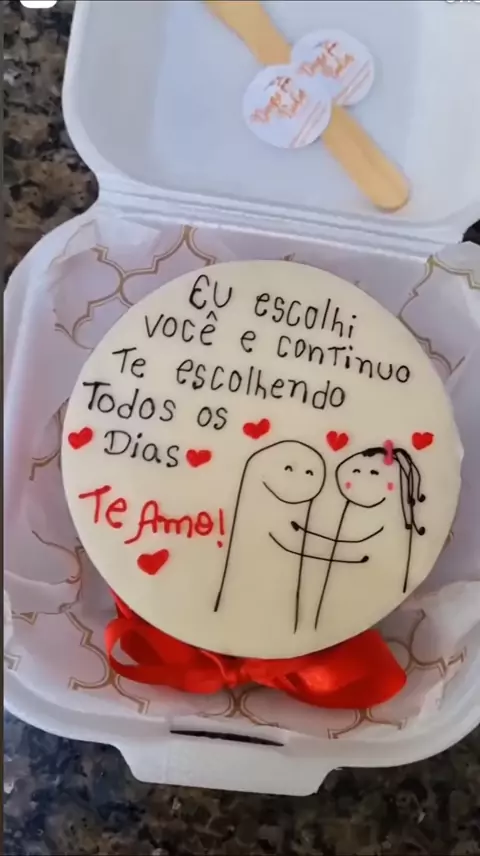 EU escolhi
você e continuo
Te escolhendo
Todos os
Dias
Te Amo!